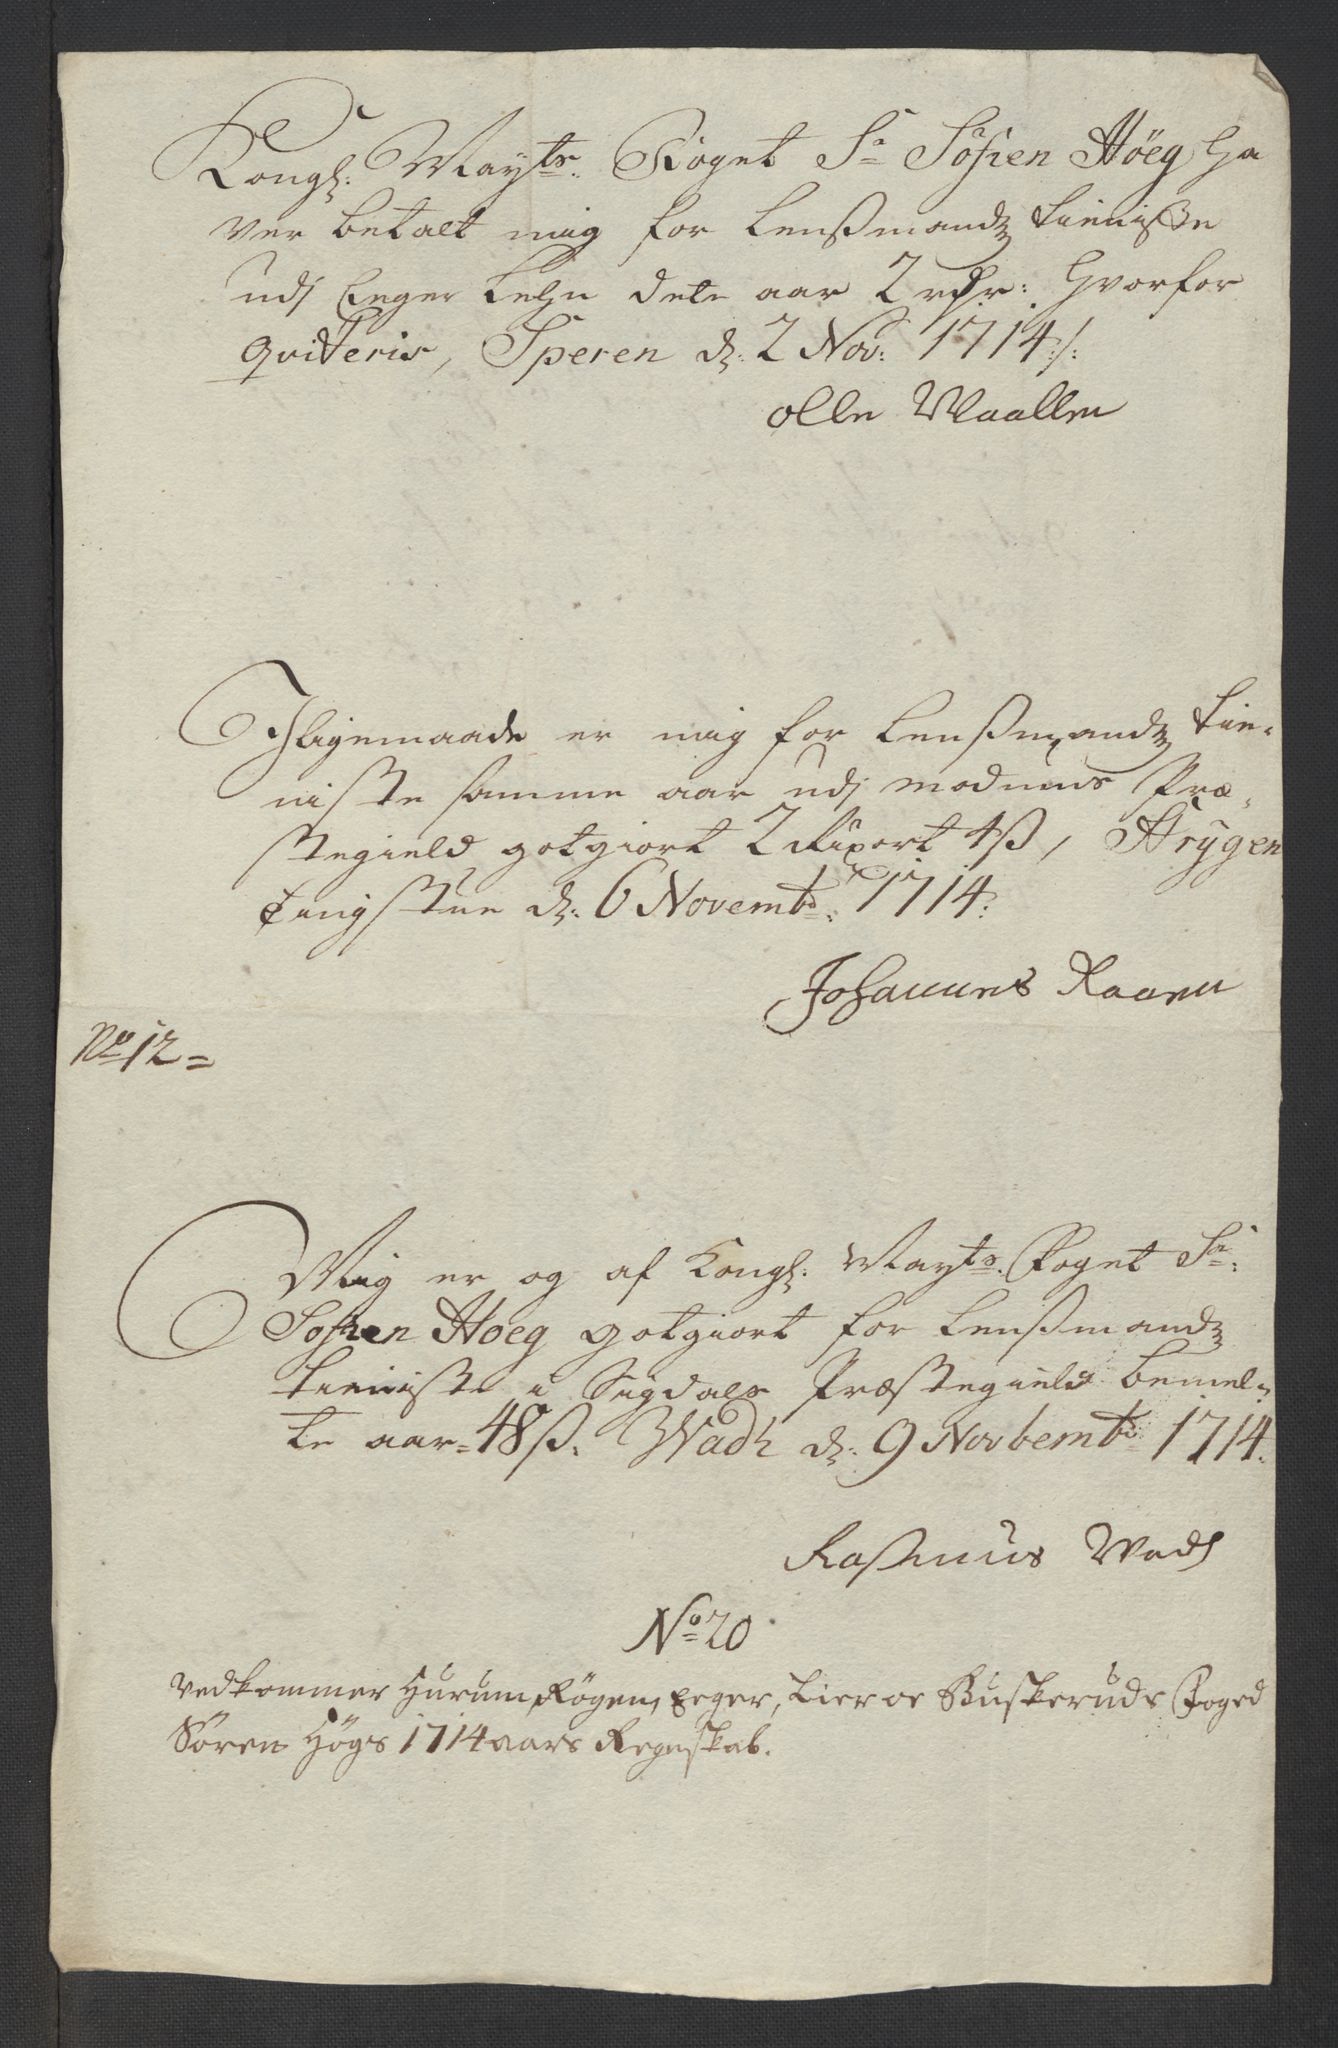 Kongl: Mayts: Foget Sr Søfren Höeg ha
ver betalt mig for Lensmandz tieniste
udj Eeger Lehn dete aar 2 rdr: hvorfor
qviteris, Speren d: 2 Nov: 1714:/:
olle Maallen
Jligemaade er mig for Lenßmandz tie-
niste samme aar udj modums Præ-
stegield gotgiort 2 Rixort 4 ß, Strygen
tingstue d: 6 Novembr: 1714:
Johannes Raaen
No 12 =
Mig er og af Kongl: Mayts: Foget Sr:
Søfren Höeg gotgiort for Lenßmandz
tieniste i Sigdals Præstegield bemel-
te aar = 48 ß. Wadh d: 9 Novbembr: 1714.
Raßmus Wedh
No 20
vedkommer Hurum, Røgen, Eeger, Lier oc Buskeruds Foged
Søren Høgs 1714 aars Regnskab.